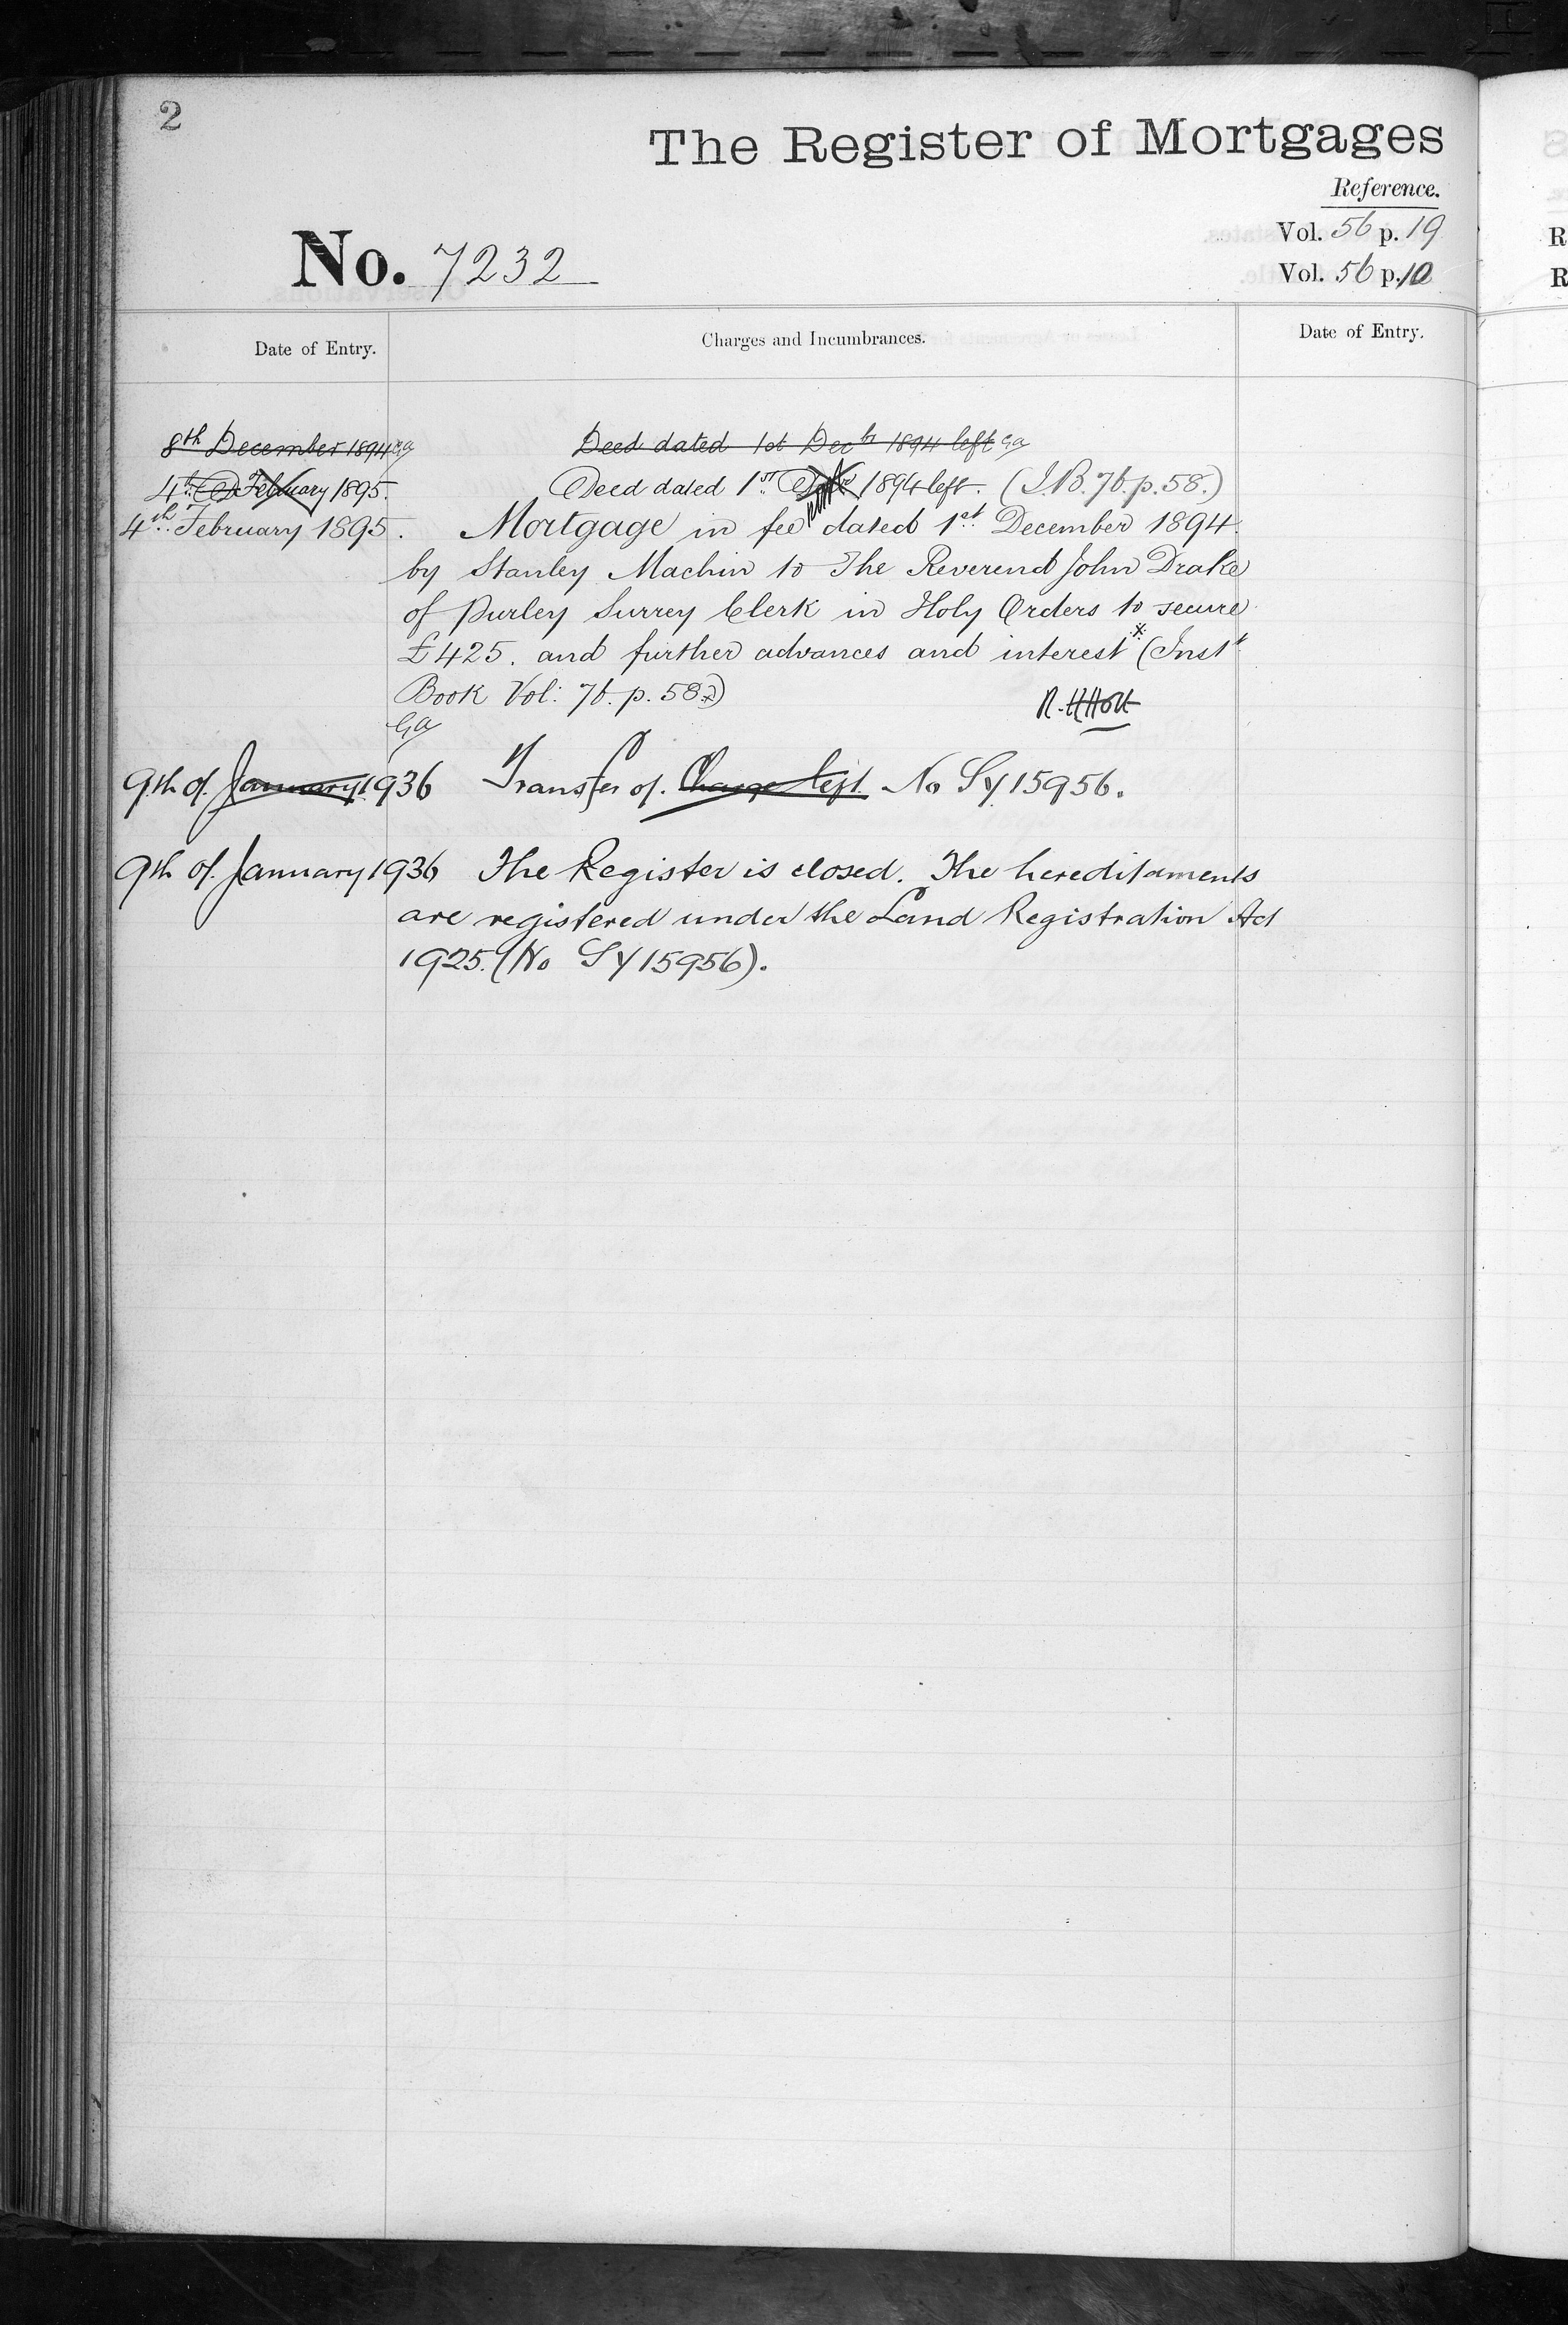 2
The Register of Mortgages
Reference.
Vol. 56 p. 19
No. 7232
Vol. 56 p. 10
Date of Entry.
Charges and Incumbrances.
Date of Entry.
8th December 1894 GA Deed dated 1st Decbr 1894 left GA
4th February 1895. Deed dated 1st 1894 left. (I.B. 76. p. 58.)
4th February 1895. Mortgage in fee dated 1st December 1894.
by Stanley Machin to The Reverend John Drake
of Purley Surrey Clerk in Holy Orders to secure
£425. and further advances and interest* (Inst
Book Vol: 76. p. 58.)
R. H Holt
GA
9th of January 1936 Transfer of Charge left No SY 15956.
9th of January 1936 The Register is closed. The hereditaments
are registered under the Land Registration Act
1925. (No SY 15956).
R
R